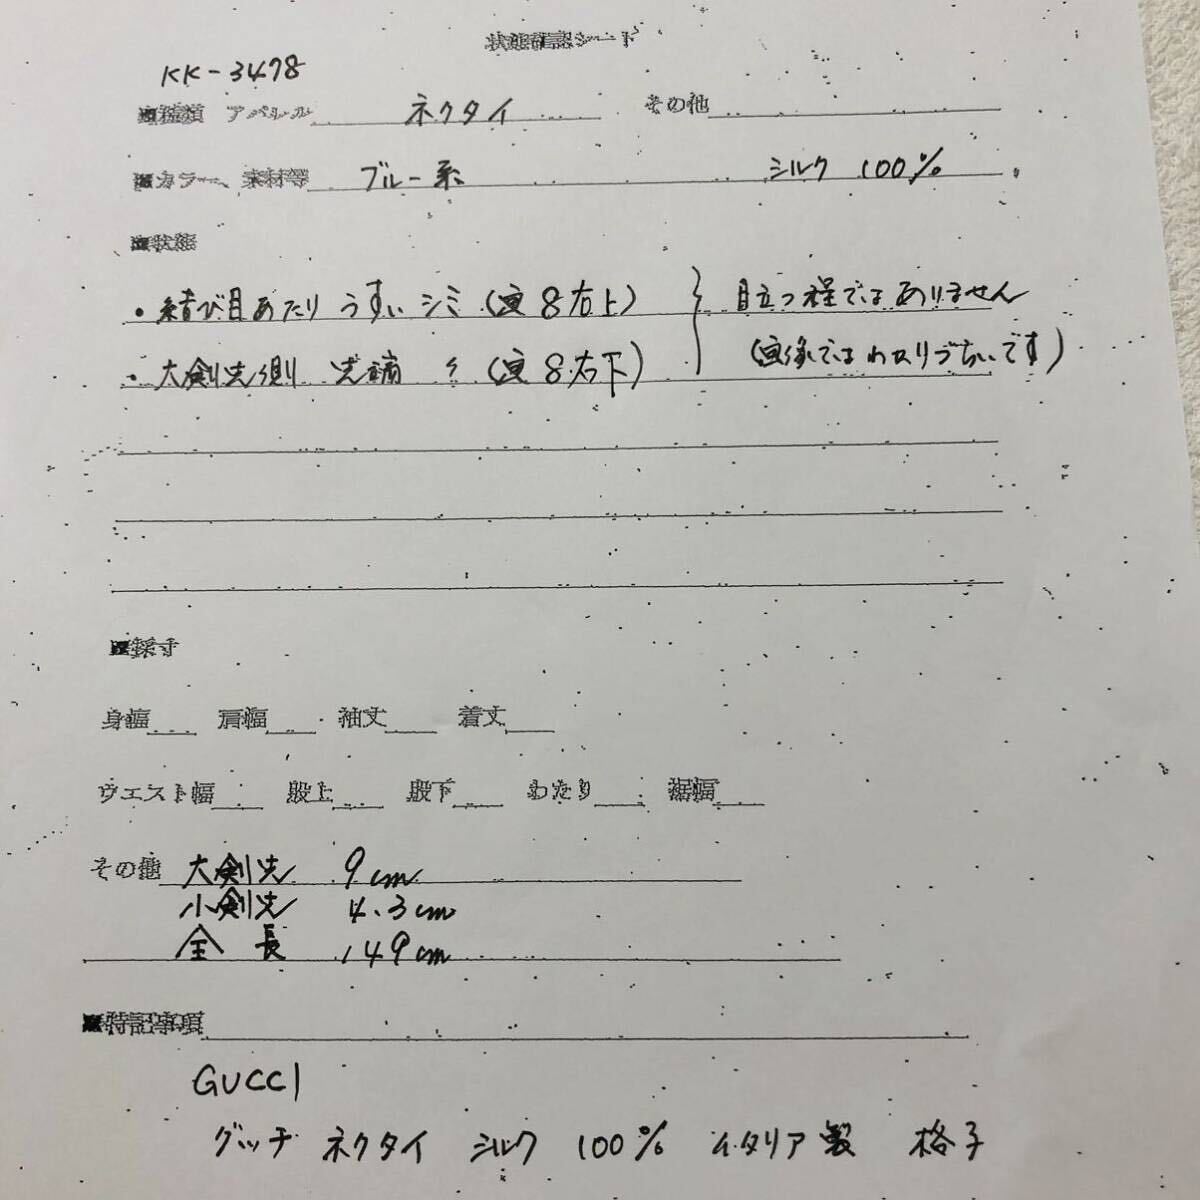 状態確認シート
KK-3478
■種類 アパレル ネクタイ その他
■カラー、素材等 ブルー系 シルク 100%
■状態
・結び目あたり うすいシミ (画8右上) 目立つ程ではありません
・大剣先側 先端 〃 (画8右下) (画像ではわかりづらいです)
■採寸
身幅 肩幅 袖丈 着丈
ウエスト幅 股上 股下 わたり 裾幅
その他 大剣先 9cm
小剣先 4.3cm
全長 149cm
■特記事項
GUCCI
グッチ ネクタイ シルク 100% イタリア製 格子